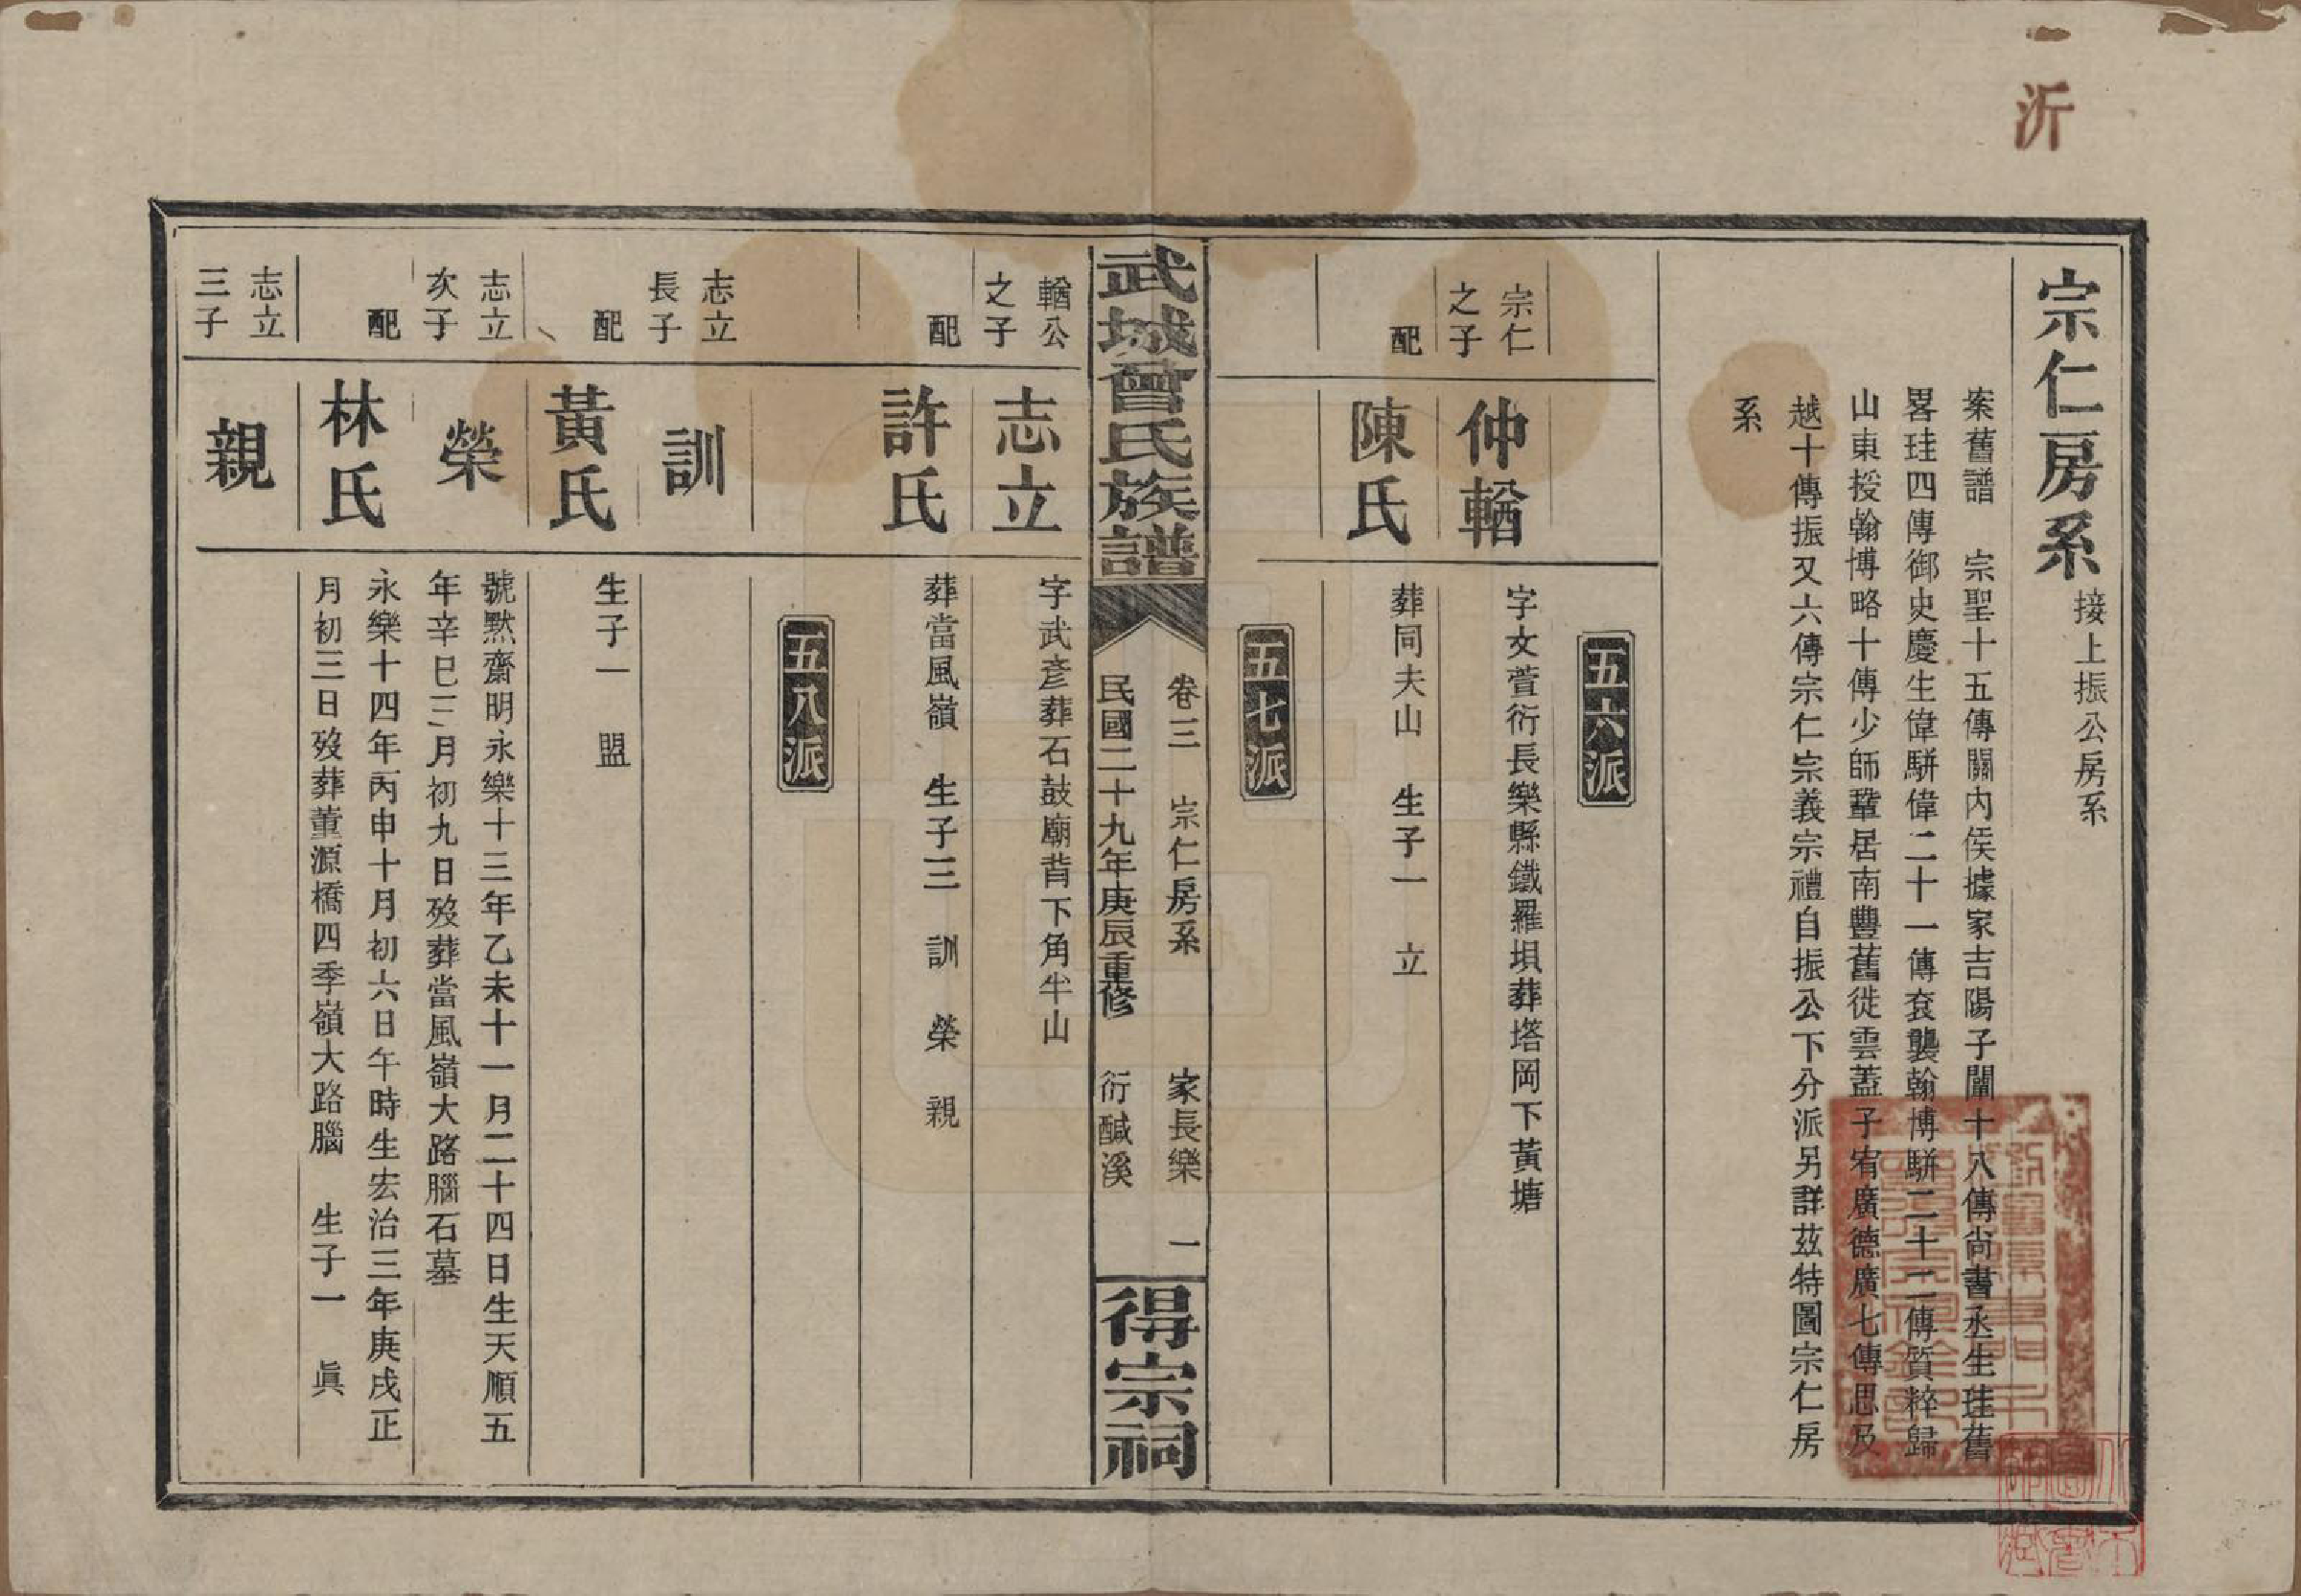 沂
宗仁房系 接上振公房系
案舊譜 宗聖十五傳關內侯據家吉陽子闡十八傳尙書丞生珪舊
畧珪四傳御史慶生偉駢偉二十一傳袞襲翰博駢二十二傳質粹歸
山東授翰博略十傳少師鞏居南豐舊徙雲蓋子宥廣德廣七傳思及
越十傳振又六傳宗仁宗義宗禮自振公下分派另詳茲特圖宗仁房
系
五六派
宗仁之子 仲輶 字文萱衍長樂縣鐵羅垻葬塔岡下黃塘
配 陳氏 葬同夫山 生子一 立
五七派
武城曾氏族譜 卷三 宗仁房系 家長樂 一
民國二十九年庚辰重修 衍鹹溪
得宗祠
輶公之子 志立 字武彥葬石鼓廟背下角半山
配 許氏 葬當風嶺 生子三 訓 榮 親
五八派
志立長子 訓
配 黃氏 生子一 盟
志立次子 榮 號默齋明永樂十三年乙未十一月二十四日生天順五
年辛巳三月初九日歿葬當風嶺大路腦石墓
配 林氏 永樂十四年丙申十月初六日午時生宏治三年庚戌正
月初三日歿葬董源橋四季嶺大路腦 生子一 眞
志立三子 親